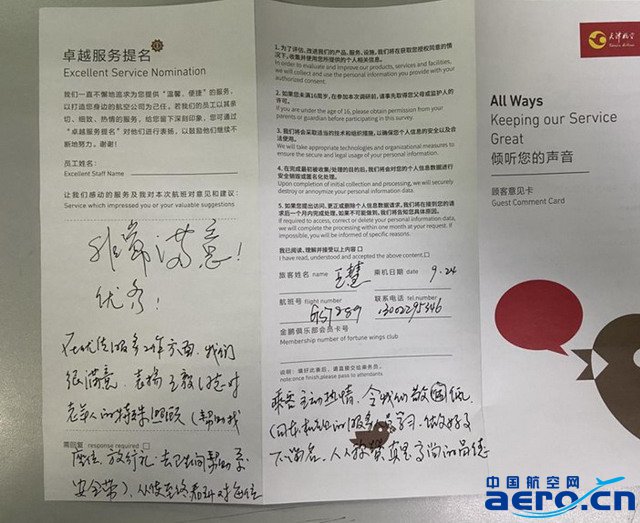 卓越服务提名
Excellent Service Nomination
我们一直不懈地追求为您提供“温馨、便捷”的服务，
以打造您身边的航空公司为己任，若我们的员工以其亲
切、细致、热情的服务，给您留下深刻印象，您可通过
“卓越服务提名”对他们进行表扬，以鼓励他们继续不
断地努力。谢谢！
员工姓名：
Excellent Staff Name
让我们感动的服务及我对本次航班对意见和建议：
Service which impressed you or your valuable suggestions
非常满意！
优秀！
在优质服务工作方面，我们
很满意，表扬王毅同志对
老年人的特殊照顾
需回复 response required
安全带）
1. 为了评估、改进我们的产品、服务、设施，我们将在获取您授权同意的情
况下，收集并使用您所提供的个人相关信息。
In order to evaluate and improve our products, services and facilities,
we will collect and use the personal information you provide with your
authorized consent.
2. 如果您未满16周岁，在参加本次调研前，请事先取得您父母或监护人的
许可。
If you are under the age of 16, please obtain permission from your
parents or guardian before participating in this survey.
3. 我们将会采取适当的技术和组织措施，以确保您个人信息的安全以及合
法使用。
We will take appropriate technologies and organizational measures to
ensure the secure and legal usage of your personal information.
4. 在完成最初被收集/处理的目的后，我们将会对您的个人信息数据进行
安全销毁或匿名化处理。
Upon completion of initial collection and processing, we will securely
destroy or annoymize your personal information data.
5. 如果您提出访问、更正或删除个人信息数据请求，我们将在接到您的请
求后一个月内完成处理，如果不可能做到，我们将会知您具体原因。
If required to access, correct or delete your personal information data,
we will complete the processing within one month at your request. If
impossible, you will be informed of specific reasons.
我已阅读、理解并接受以上内容
I have read, understood and accepted the above content.
旅客姓名 name 王慧 乘机日期 date 9.24
航班号 flight number 联系电话 tel.number
金鹏俱乐部会员卡号
Membership number of fortune wings club
说明：填好此表后，请直接交给乘务员。
note:once finish,please pass to attendants
乘客主动热情，令我们敬佩
天津航空
Tianjin Airlines
All Ways
Keeping our Service
Great
倾听您的声音
顾客意见卡
Guest Comment Card
中国航空网
aero.cn